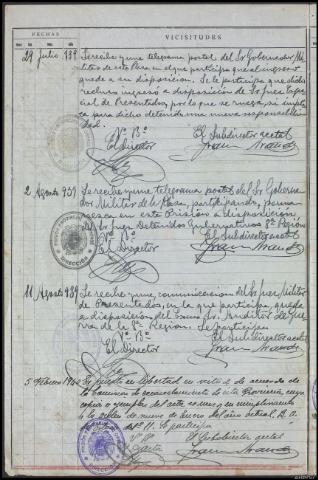 FECHAS
VICISITUDES
29 Julio 939 Se recibe y une telegrama postal del Sr Gobernador Mi-
litar de esta Plaza en el que participa que al ingreso
quede a su disposicion. Se le participa que dicho
recluso ingresó a disposicion de Sr Juez Espe-
cial de Presentados por lo que se ruega si
para dicho detenido una nueva responsabili-
dad.
Vº Bº
El Subdirector acctal
El Director
2 Agosto 939 Se recibe y une telegrama postal del Sr Goberna-
dor Militar de la Plaza, participando, perma-
nezca en esta Prision a disposición
del Sr Juez Detenidos Gubernativos 2ª Región
Vº Bº
El Subdirector acctal
El Director
11 Agosto 939 Se recibe y une comunicacion del Sr Juez Militar
de Presentados, en la que participa queda
a disposicion del Excmo Sr. Auditor de Gue-
rra de la 2ª Región. Se participa
Vº Bº
El Subdirector acctal
El Director
5 Febrero 1940 Es puesto en libertad en virtud de acuerdo de
la comision de de esta Provincia cuya
copia o ejemplar del acta se une y en cumplimiento
a la orden de nueve de Enero del año actual, B. O.
del Nº 11. Se participa
Vº Bº
El Subdirector acctal